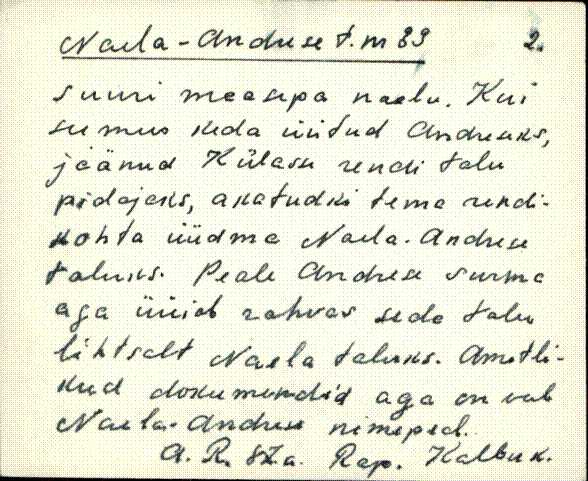 Naela-Andruse t. m 89 2.
suuri maasepa naelu. Kui
see mees keda üütud Andruks,
jäänud Külasse rendi talu
pidajaks, akatudki tema rendi-
kohta üüdma Naela-Andruse
taluks. Peale Andruse surma
aga üüab rahvas seda talu
lihtsalt Naela taluks. Ametli-
kud dokumendid aga on veel
Naela-Andruse nimeped.
A. R. 87.a. Rap. Kalbu k.